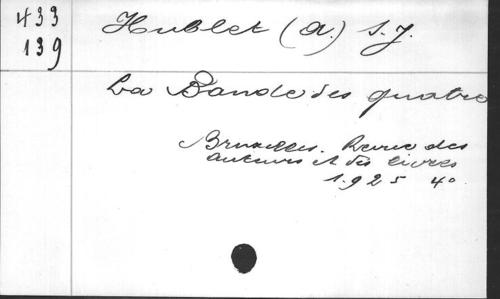 433
139
Hublet (A.) S. J.
La Bande des quatre
Bruxelles. Revue des
auteurs et des livres
1925 4o